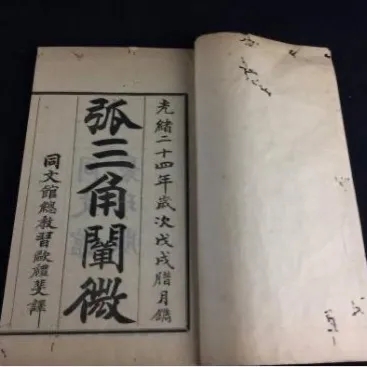 光緒二十四年歲次戊戌腊月鐫
弧三角闡微
同文館總教習歐禮斐譯